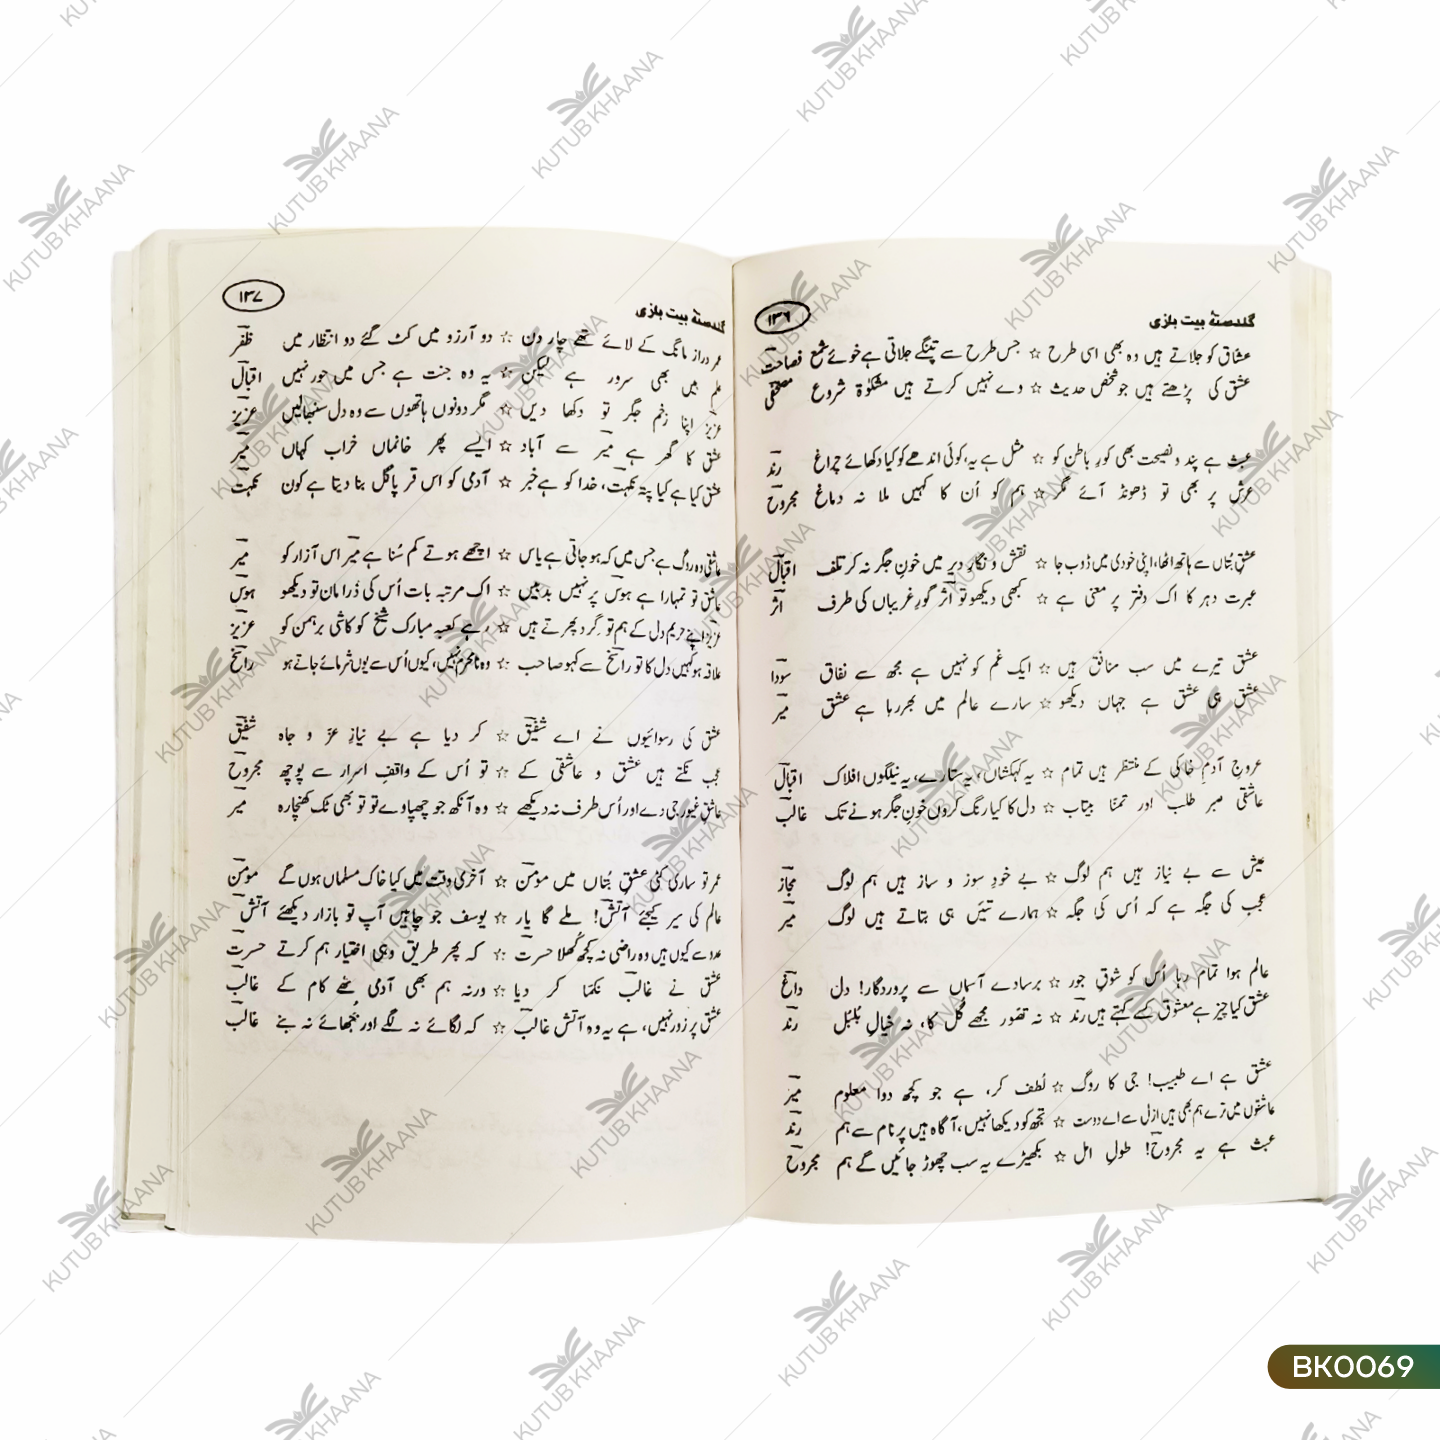 گلدستۂ بیت بازی
۱۳۶
عشاق کو جلاتے ہیں وہ بھی اسی طرح ☆ جس طرح سے پتنگے جلاتی ہے خوئے شمع فصاحت
عشق کی پڑھتے ہیں جو شخص حدیث ☆ دے نہیں کرتے ہیں مشکوٰۃ شروع مصحفی
عبث ہے پند و نصیحت بھی کورِ باطن کو ☆ مثل ہے یہ، کوئی اندھے کو کیا دکھائے چراغ رند
عرش پر بھی تو ڈھونڈ آئے مگر ☆ ہم کو اُن کا کہیں ملا نہ دماغ مجروح
عشقِ بُتاں سے ہاتھ اٹھا، اپنی خودی میں ڈوب جا ☆ نقش و نگارِ دیر میں خونِ جگر نہ کر تلف اقبال
عبرت دہر کا اک دفتر پر معنی ہے ☆ کبھی دیکھو تو اثر گورِ غریباں کی طرف اثر
عشق تیرے میں سب منافق ہیں ☆ ایک غم کو نہیں ہے مجھ سے نفاق سودا
عشق ہی عشق ہے جہاں دیکھو ☆ سارے عالم میں بھر رہا ہے عشق میر
عروجِ آدم خاکی کے منتظر ہیں تمام ☆ یہ کہکشاں، یہ ستارے، یہ نیلگوں افلاک اقبال
عاشقی صبر طلب اور تمنّا بیتاب ☆ دل کا کیا رنگ کروں خونِ جگر ہونے تک غالب
عیش سے بے نیاز ہیں ہم لوگ ☆ بے خودِ سوز و ساز ہیں ہم لوگ مجاز
عجب کی جگہ ہے کہ اُس کی جگہ ☆ ہمارے تئیں ہی بتاتے ہیں لوگ میر
عالم ہوا تمام رہا اُس کو شوقِ جور ☆ برسادے آسماں سے پروردگار! دل داغ
عشق کیا چیز ہے معشوق کسے کہتے ہیں رند ☆ نہ تصّور مجھے گُل کا، نہ خیالِ بُلبُل رند
عشق ہے اے طبیب! جی کا روگ ☆ لُطف کر، ہے جو کچھ دوا معلوم میر
عاشقوں میں ترے ہم بھی ہیں ازل سے اے دوست ☆ تجھ کو دیکھا نہیں، آگاہ ہیں پر نام سے ہم رند
عبث ہے یہ مجروح! طولِ امل ☆ بکھیڑے یہ سب چھوڑ جائیں گے ہم مجروح
گلدستۂ بیت بازی
۱۳۷
عمرِ دراز مانگ کے لائے تھے چار دن ☆ دو آرزو میں کٹ گئے دو انتظار میں ظفر
علم میں بھی سرور ہے لیکن ☆ یہ وہ جنت ہے جس میں حور نہیں اقبال
عزیز اپنا زخم جگر تو دکھا دیں ☆ مگر دونوں ہاتھوں سے وہ دل سنبھالیں عزیز
عشق کا گھر ہے میر سے آباد ☆ ایسے پھر خانماں خراب کہاں میر
عشق کیا ہے کیا پتہ نکہت، خدا کو ہے خبر ☆ آدمی کو اس قدر پاگل بنا دیتا ہے کون نکہت
عاشقی وہ روگ ہے جس میں کہ ہو جاتی ہے یاس ☆ اچھے ہوتے کم سُنا ہے میر اس آزار کو میر
عاشق تو تمہارا ہے ہوس پر نہیں بدبیں ☆ اک مرتبہ بات اُس کی ذرا مان تو دیکھو ہوس
عزیز اپنے حریم دل کے ہم تو گرد پھرتے ہیں ☆ رہے کعبہ مبارک شیخ کو کاشی برہمن کو عزیز
علاقہ ہو کہیں دل کا تو راسخ سے کہو صاحب ☆ وہ نامحرم نہیں، کیوں اُس سے یوں شرمائے جاتے ہو راسخ
عشق کی رسوائیوں نے اے شفیق ☆ کر دیا ہے بے نیازِ عزّ و جاہ شفیق
عجب نکتے ہیں عشق و عاشقی کے ☆ تو اُس کے واقفِ اسرار سے پوچھ مجروح
عاشق غیور جی دے اور اُس طرف نہ دیکھے ☆ وہ آنکھ جو چھپاوے تو تو بھی ٹک کھنچا رہ میر
عمر تو ساری کٹی عشقِ بُتاں میں مومن ☆ آخری وقت میں کیا خاک مسلماں ہوں گے مومن
عالم کی سیر کیجئے آتش! ملے گا یار ☆ یوسف جو چاہیں آپ تو بازار دیکھئے آتش
عدو سے کیوں ہیں وہ راضی نہ کچھ کُھلا حسرت ☆ کہ پھر طریق وہی اختیار ہم کرتے حسرت
عشق نے غالب نکمّا کر دیا ☆ ورنہ ہم بھی آدمی تھے کام کے غالب
عشق پر زور نہیں، ہے یہ وہ آتش غالب ☆ کہ لگائے نہ لگے اور بُجھائے نہ بنے غالب
BK0069
KUTUB KHAANA